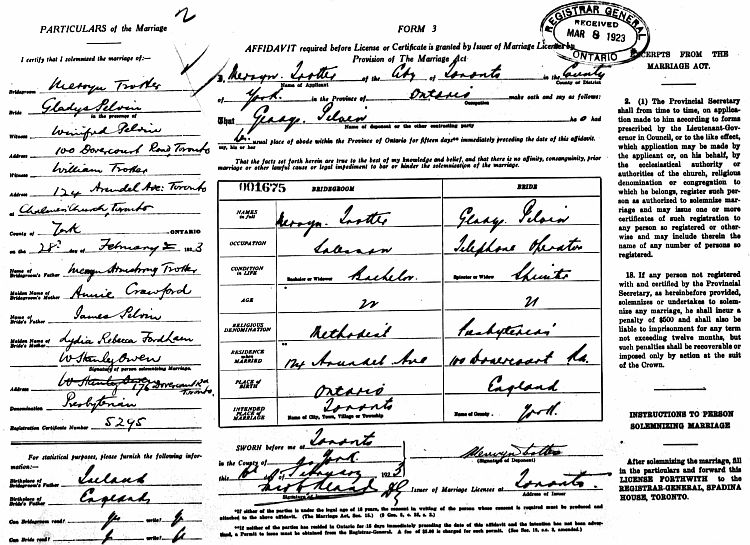 PARTICULARS of the Marriage
2
I certify that I solemnized the marriage of:-
Bridegroom Mervyn Trotter
Bride Gladys Pelvin
in the presence of
Witness Winifred Pelvin
Address 100 Dovercourt Road Toronto
Witness William Trotter
Address 124 Arundel Ave: Toronto
at Chalmers Church, Toronto
County of York ONTARIO
on the 28th day of February 1923
Name of Bridegroom's Father Mervyn Armstrong Trotter
Maiden Name of Bridegroom's Mother Annie Crawford
Name of Bride's Father James Pelvin
Maiden Name of Bride's Mother Lydia Rebecca Fordham
W Stanley Owen
Signature of person solemnizing Marriage.
Address W Stanley Owen 176 Dovercourt Rd Toronto.
Denomination Presbyterian
Registration Certificate Number 5295
For statistical purposes, please furnish the following information:-
Birthplace of Bridegroom's Father Ireland
Birthplace of Bride's Father England
Can Bridegroom read? Yes write?
Can Bride read? write?
FORM 3
REGISTRAR GENERAL
RECEIVED
MAR 8 1923
ONTARIO
AFFIDAVIT required before License or Certificate is granted by Issuer of Marriage Licenses by
Provision of The Marriage Act
I, Mervyn Trotter of the City of Toronto in the County
Name of Applicant
County or District
of York in the Province of Ontario make oath and say as follows:
Occupation
That Gladys Pelvin he had
Name of deponent or the other contracting party
her usual place of abode within the Province of Ontario for fifteen days** immediately preceding the date of this affidavit.
my, his or her
The facts set forth herein are true to the best of my knowledge and belief, and that there is no affinity, consanguinity, prior marriage or other lawful cause or legal impediment to bar or hinder the solemnization of the marriage.
001675 BRIDEGROOM BRIDE
NAMES in full Mervyn Trotter Gladys Pelvin
OCCUPATION Salesman Telephone Operator
CONDITION IN LIFE Bachelor Spinster
Bachelor or Widower Spinster or Widow
AGE 22 21
RELIGIOUS DENOMINATION Methodist Presbyterian
RESIDENCE when MARRIED 124 Arundel Ave 100 Dovercourt Rd.
PLACE OF BIRTH Ontario England
INTENDED PLACE OF MARRIAGE Toronto York.
Name of City, Town, Village or Township Name of County
SWORN before me at Toronto
in the County of York
this day of February 1923
Mervyn Trotter
(Signature of Deponent)
Issuer of Marriage Licenses at Toronto.
Signature of Issuer
Address of Issuer
*If either of the parties is under the legal age of 18 years, the consent in writing of the person whose consent is required must be produced and attached to the above affidavit. (The Marriage Act, Sec. 15.)
**If neither of the parties has resided in Ontario for 15 days immediately preceding the date of this affidavit and the intention has not been advertised, a Permit to issue must be obtained from the Registrar-General. A fee of $5.00 is charged for such permit.
EXCERPTS FROM THE
MARRIAGE ACT.
2. (1) The Provincial Secretary
shall from time to time, on application
made to him according to forms
prescribed by the Lieutenant-Governor
in Council, or to the like effect,
which application may be made by
the applicant or, on his behalf, by
the ecclesiastical authority or
authorities of the church, religious
denomination or congregation to
which he belongs, register such person
as authorized to solemnize marriage
and may issue one or more
certificates of such registration to
any person so registered or otherwise
and may include therein the
name of any number of persons so
registered.
18. If any person not registered
with and certified by the Provincial
Secretary, as hereinbefore provided,
solemnizes or undertakes to solemnize
any marriage, he shall incur a
penalty of $500 and shall also be
liable to imprisonment for any term
not exceeding twelve months, but
such penalties shall be recoverable or
imposed only by action at the suit
of the Crown.
INSTRUCTIONS TO PERSON
SOLEMNIZING MARRIAGE
After solemnizing the marriage, fill
in the particulars and forward this
LICENSE FORTHWITH to the
REGISTRAR-GENERAL, SPADINA
HOUSE, TORONTO.